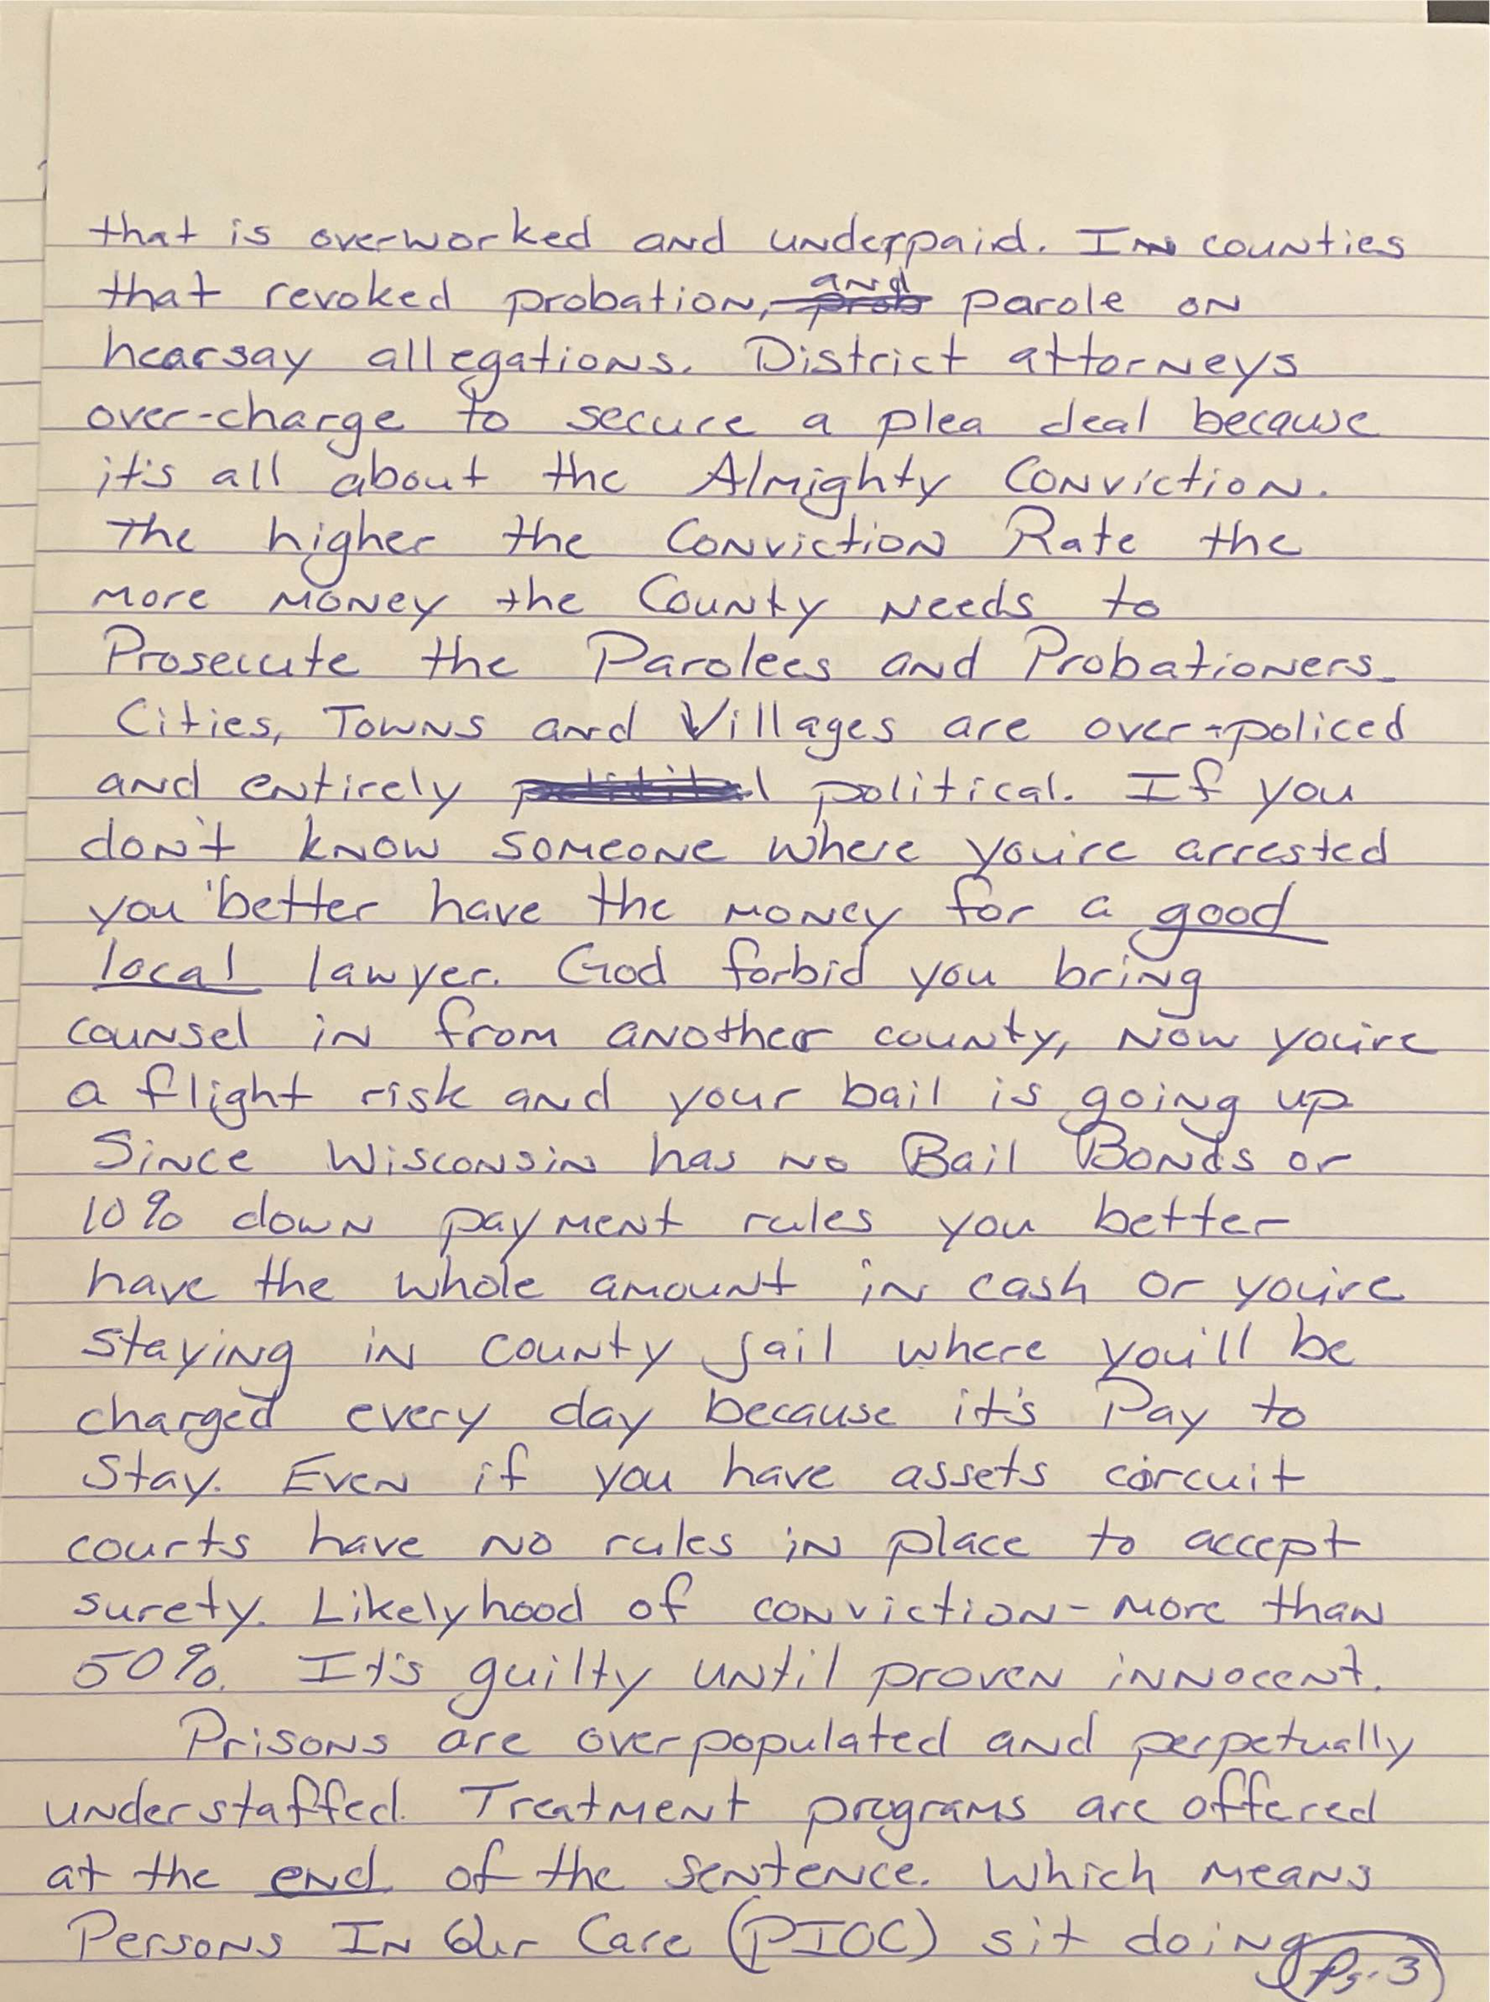 that is overworked and underpaid. In counties
that revoked probation, and parole on
hearsay allegations. District attorneys
over-charge to secure a plea deal because
it's all about the Almighty Conviction.
The higher the Conviction Rate the
more money the County needs to
Prosecute the Parolees and Probationers.
Cities, Towns and Villages are over-policed
and entirely political. If you
don't know someone where you're arrested
you better have the money for a good
local lawyer. God forbid you bring
counsel in from another county, now you're
a flight risk and your bail is going up
Since Wisconsin has no Bail Bonds or
10% down payment rules you better
have the whole amount in cash or you're
staying in county jail where you'll be
charged every day because it's Pay to
Stay. Even if you have assets circuit
courts have no rules in place to accept
surety. Likelyhood of conviction - more than
50%. It's guilty until proven innocent.
Prisons are overpopulated and perpetually
understaffed. Treatment programs are offered
at the end of the sentence. Which means
Persons In Our Care (PIOC) sit doing
Pg. 3